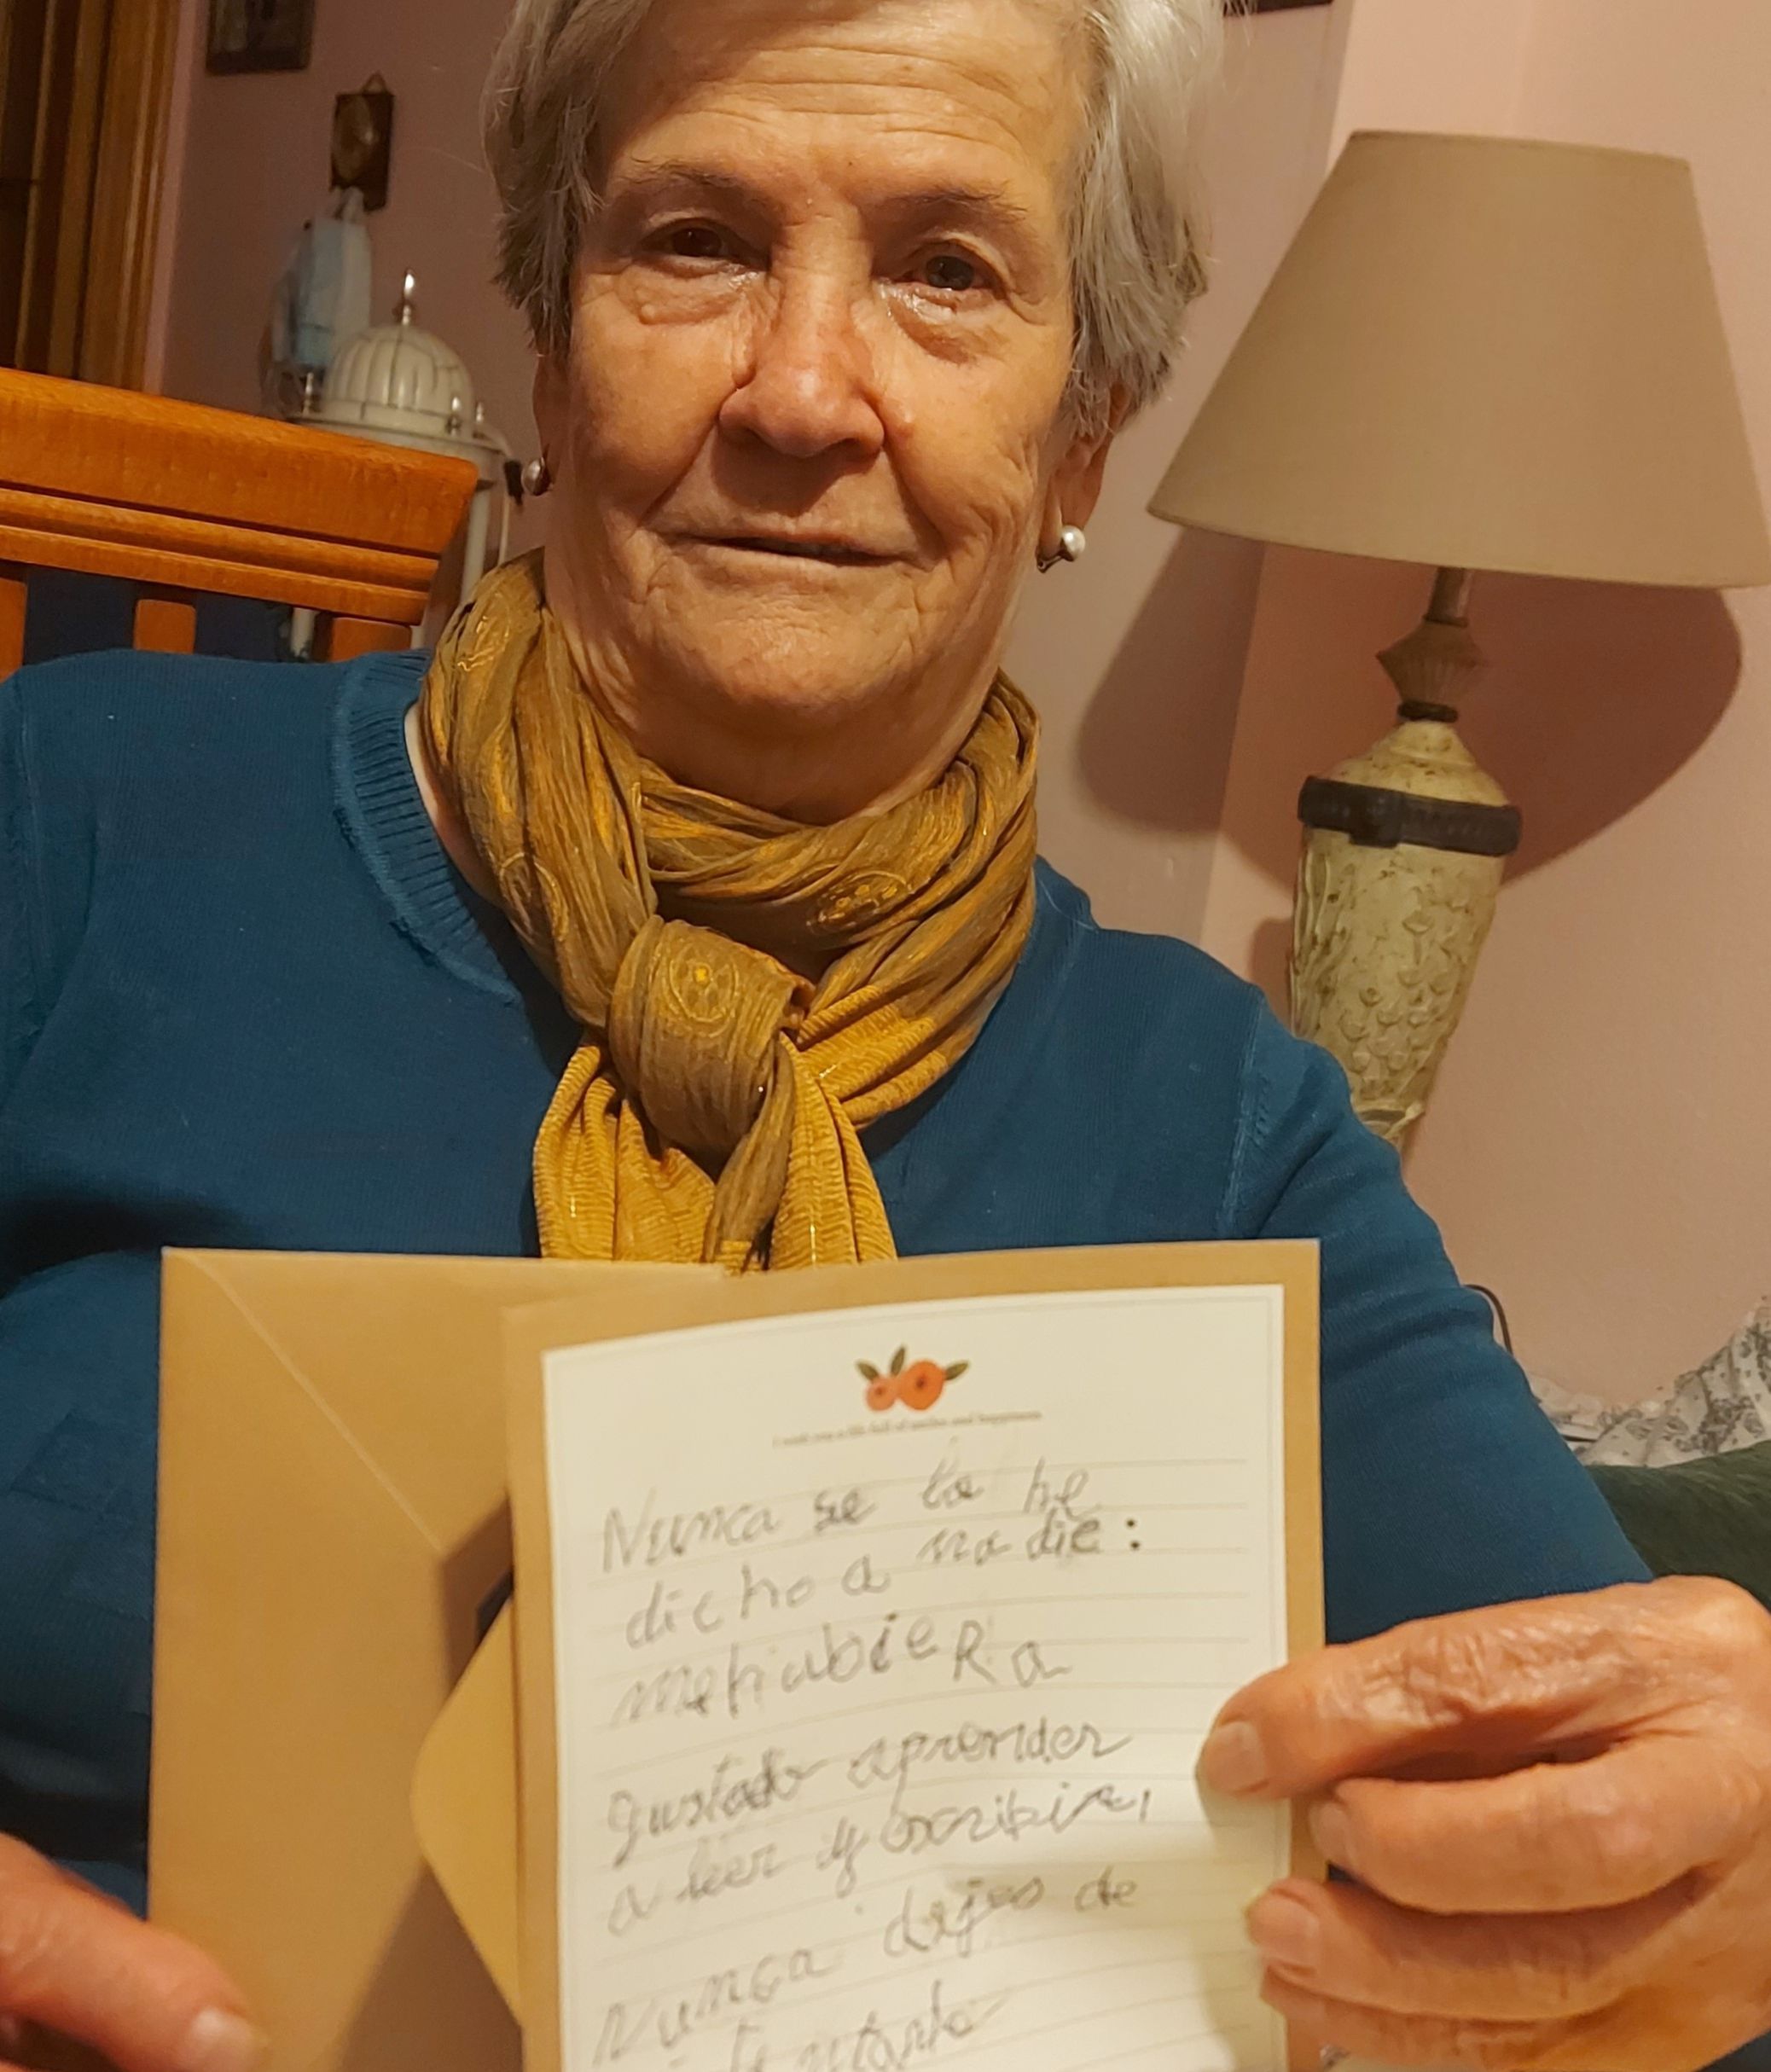 I wish you a life full of smiles and happiness
Nunca se lo he
dicho a nadie:
mehubieRa
gustado aprender
a leer y escribir,
Nunca dejes de
intentarlo